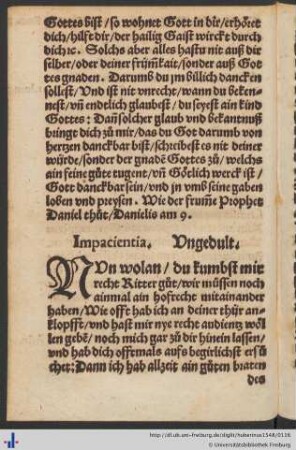 Gottes bist / so wohnet Gott in dir / erhöret
dich / hilfft dir / der hailig Gaist wirckt durch
dich ꝛc. Solchs aber alles hastu nit auß dir
selber / oder deiner frümkait / sonder auß Got
tes gnaden. Darumb du jm billich dancken
sollest / Vnd ist nit vnrecht / wann du beken-
nest / vn̄ endtlich glaubest / du seyest ain kind
Gottes: Dan̄ solcher glaub vnd bekantnuß
bringt dich zů mir / das du Got darumb von
hertzen danckbar bist / schreibest es nit deiner
wirde / sonder der gnadē Gottes zů / welchs
ain feine gůte tugent / vn̄ Götlich werck ist /
Gott danckbar sein / vnd jn vmb seine gaben
loben vnd preysen. Wie der frum̄e Prophet
Daniel thůt / Danielis am 9.
Impacientia. Vngedult.
NVn wolan / du kumbst mir
recht Ritter gůt / wir müssen noch
ainmal ain hofrecht mitainander
haben / Wie offt hab ich an deiner thür an-
klopfft / vnd hast mir nye recht audientz wöl
len gebē / noch mich gar zů dir hinein lassen /
vnd hab dich offtmals auffs begirlichst ersů
chet: Dann ich hab allzeit ain gůten braten
des
http://dl.ub.uni-freiburg.de/diglit/habermus1548/0116
Universitätsbibliothek Freiburg